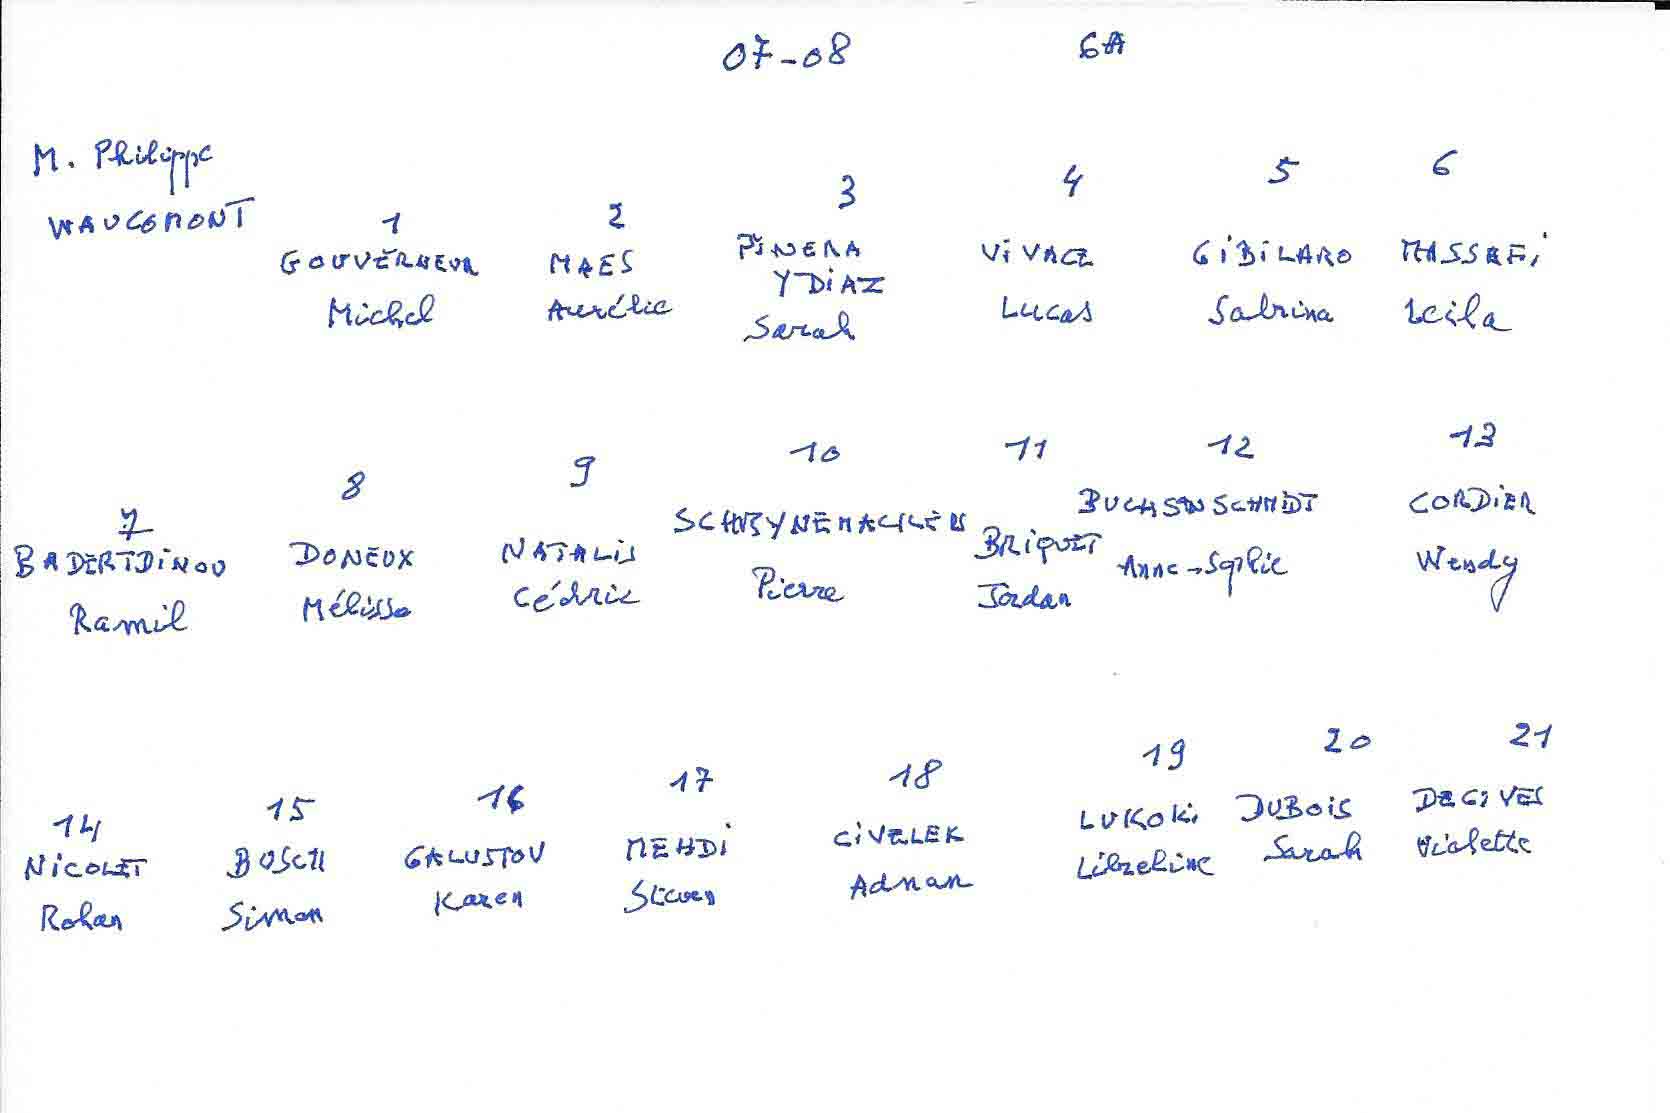 07-08 6A
M. Philippe
WAUCOMONT
1 2 3 4 5 6
GOUVERNEUR MAES PINERA VIVACE GIBILARO MASSAFI
Y DIAZ
Michel Aurélie Sarah Lucas Sabrina Leila
7 8 9 10 11 12 13
BADERTDINOV DONEUX NATALIS SCHRYNEMACKERS BRIQUET BUCHSENSCHMIDT CORDIER
Ramil Mélissa Cédric Pierre Jordan Anne-Sophie Wendy
14 15 16 17 18 19 20 21
NICOLET BOSCH GALUSTOV MEHDI CIVELEK LUKOKI DUBOIS DEGIVES
Rohan Simon Karen Steven Adnan Sarah Violette